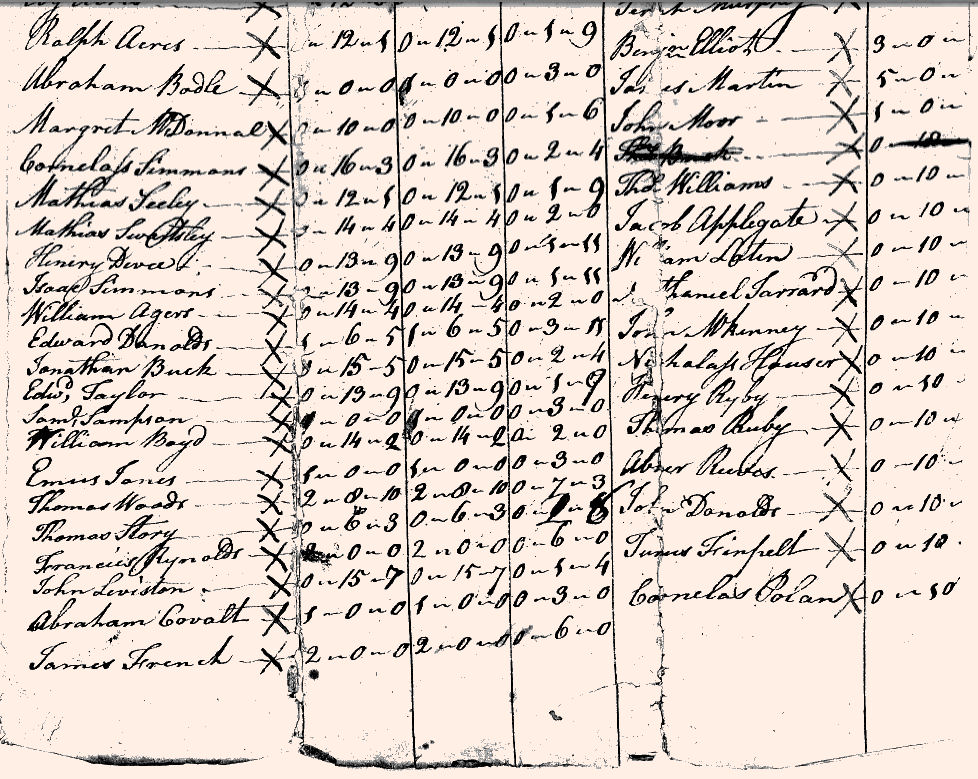 Ralph Acres X 0 " 12 " 5 0 " 12 " 5 0 " 1 " 9
Abraham Bodle X 1 " 0 " 0 1 " 0 " 0 0 " 3 " 0
Margret McDonnal X 0 " 10 " 0 0 " 10 " 0 0 " 1 " 6
Cornelass Simmons X 0 " 16 " 3 0 " 16 " 3 0 " 2 " 4
Mathias Seeley X 0 " 12 " 5 0 " 12 " 5 0 " 1 " 9
Mathias X 0 " 14 " 4 0 " 14 " 4 0 " 2 " 0
Henery X 0 " 13 " 9 0 " 13 " 9 0 " 1 " 11
Isaac Simmons X 0 " 13 " 9 0 " 13 " 9 0 " 1 " 11
William Agers X 0 " 14 " 4 0 " 14 " 4 0 " 2 " 0
Edward Danolds X 1 " 6 " 5 1 " 6 " 5 0 " 3 " 11
Jonathan Buck X 0 " 15 " 5 0 " 15 " 5 0 " 2 " 4
Edwd Taylor X 0 " 13 " 9 0 " 13 " 9 0 " 1 " 9
Saml Sampson X 1 " 0 " 0 1 " 0 " 0 0 " 3 " 0
William Boyd X 0 " 14 " 2 0 " 14 " 2 0 " 2 " 0
Emus Jones X 1 " 0 " 0 1 " 0 " 0 0 " 3 " 0
Thomas Woods X 2 " 8 " 10 2 " 8 " 10 0 " 7 " 3
Thomas Story X 0 " 6 " 3 0 " 6 " 3 0 "
Francies Rynolds X 2 " 0 " 0 2 " 0 " 0 0 " 6 " 0
John Leviston X 0 " 15 " 7 0 " 15 " 7 0 " 1 " 4
Abraham Covalt X 1 " 0 " 0 1 " 0 " 0 0 " 3 " 0
James French X 2 " 0 " 0 2 " 0 " 0 0 " 6 " 0
Murphy
Benjn Elliot X 3 " 0 "
James Martin X 5 " 0 "
John Moor X 1 " 0 "
X 0 "
Thos Williams X 0 " 10 "
Jacob Applegate X 0 " 10 "
William Laten X 0 " 10 "
Jarrard X 0 " 10 "
John McKinney X 0 " 10 "
Nicholass Houser X 0 " 10 "
Henery Ryby X 0 " 10
Thomas Ruby X 0 " 10 "
Abner Reeves X 0 " 10 "
John Donalds X 0 " 10 "
X 0 " 10
Cornelas Polan X 0 " 10